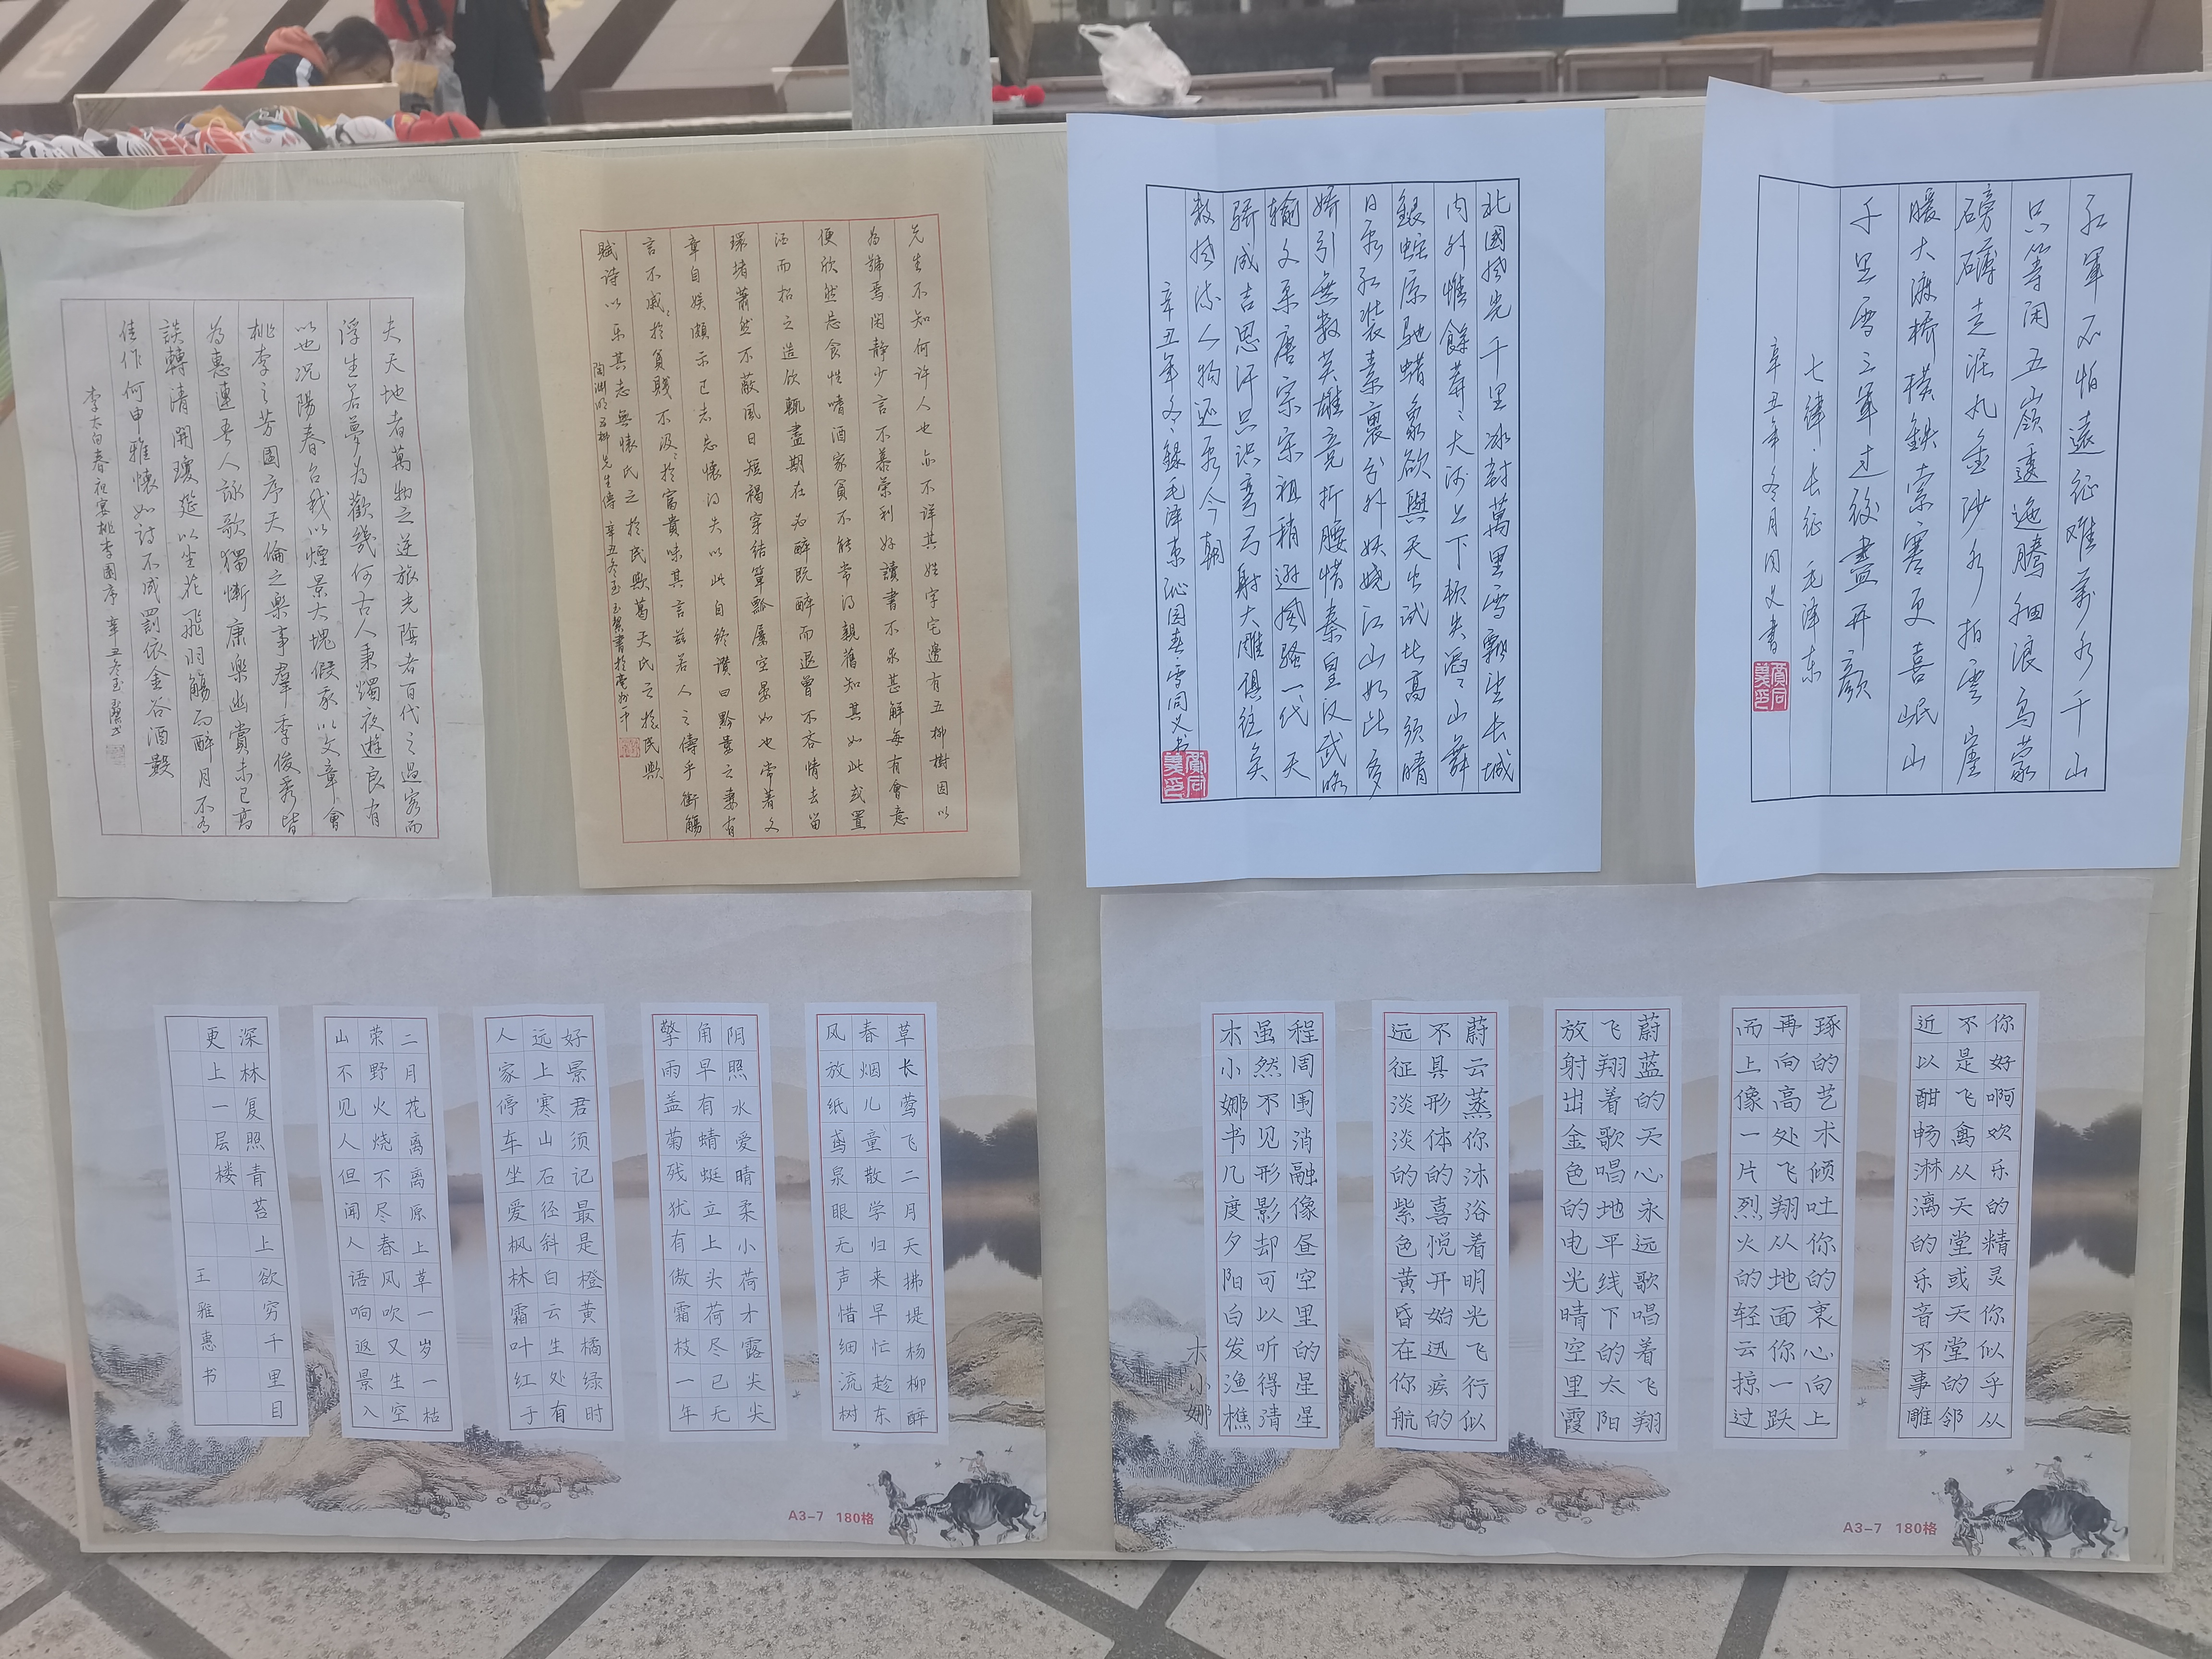 夫天地者萬物之逆旅光陰者百代之過客而
浮生若夢為歡幾何古人秉燭夜遊良有
以也況陽春召我以煙景大塊假我以文章會
桃李之芳園序天倫之樂事羣季俊秀皆
為惠連吾人詠歌獨慚康樂幽賞未已高
談轉清開瓊筵以坐花飛羽觴而醉月不有
佳作何申雅懷如詩不成罰依金谷酒數
李太白春夜宴桃李園序 辛丑冬玉
先生不知何许人也亦不详其姓字宅邊有五柳樹因以
為號焉闲静少言不慕荣利好讀書不求甚解每有會意
便欣然忘食性嗜酒家貧不能常得親舊知其如此或置
酒而招之造飲輒盡期在必醉既醉而退曾不吝情去留
環堵蕭然不蔽風日短褐穿结簞瓢屢空晏如也常著文
章自娱颇示己志忘懷得失以此自终讚曰黔婁之妻有
言不戚〻於貧賤不汲〻於富貴味其言兹若人之儔乎衔觴
賦诗以乐其志無懷氏之於民歟葛天氏之於民歟
陶渊明五柳先生傳 辛丑冬玉 玉絜書於亳州一中
北國風光千里冰封萬里雪飄望长城
内外惟餘莽〻大河上下頓失滔〻山舞
銀蛇原馳蜡象欲與天公試比高须晴
日看红装素裹分外妖娆江山如此多
娇引無数英雄竞折腰惜秦皇汉武略
输文采唐宗宋祖稍逊風骚一代天
骄成吉思汗只识弯弓射大雕俱往矣
数風流人物还看今朝
辛丑年冬錄毛泽东沁园春雪同义书
红軍不怕遠征难萬水千山
只等闲五嶺逶迤腾细浪乌蒙
磅礴走泥丸金沙水拍雲崖
暖大渡橋横鉄索寒更喜岷山
千里雪三軍过後盡开颜
七律·长征 毛泽东
辛丑年冬月同义書
草长莺飞二月天拂堤杨柳醉
春烟儿童散学归来早忙趁东
风放纸鸢泉眼无声惜细流树
阴照水爱晴柔小荷才露尖尖
角早有蜻蜓立上头荷尽已无
擎雨盖菊残犹有傲霜枝一年
好景君须记最是橙黄橘绿时
远上寒山石径斜白云生处有
人家停车坐爱枫林霜叶红于
二月花离离原上草一岁一枯
荣野火烧不尽春风吹又生空
山不见人但闻人语响返景入
深林复照青苔上欲穷千里目
更上一层楼
王雅惠书
A3-7 180格
你好啊欢乐的精灵你似乎从
不是飞禽从天堂或天堂的邻
近以酣畅淋漓的乐音不事雕
琢的艺术倾吐你的衷心向上
再向高处飞翔从地面你一跃
而上像一片烈火的轻云掠过
蔚蓝的天心永远歌唱着飞翔
飞翔着歌唱地平线下的太阳
放射出金色的电光晴空里霞
蔚云蒸你沐浴着明光飞行似
不具形体的喜悦开始迅疾的
远征淡淡的紫色黄昏在你航
程周围消融像昼空里的星星
虽然不见形影却可以听得清
木小娜书几度夕阳白发渔樵
木小娜
A3-7 180格